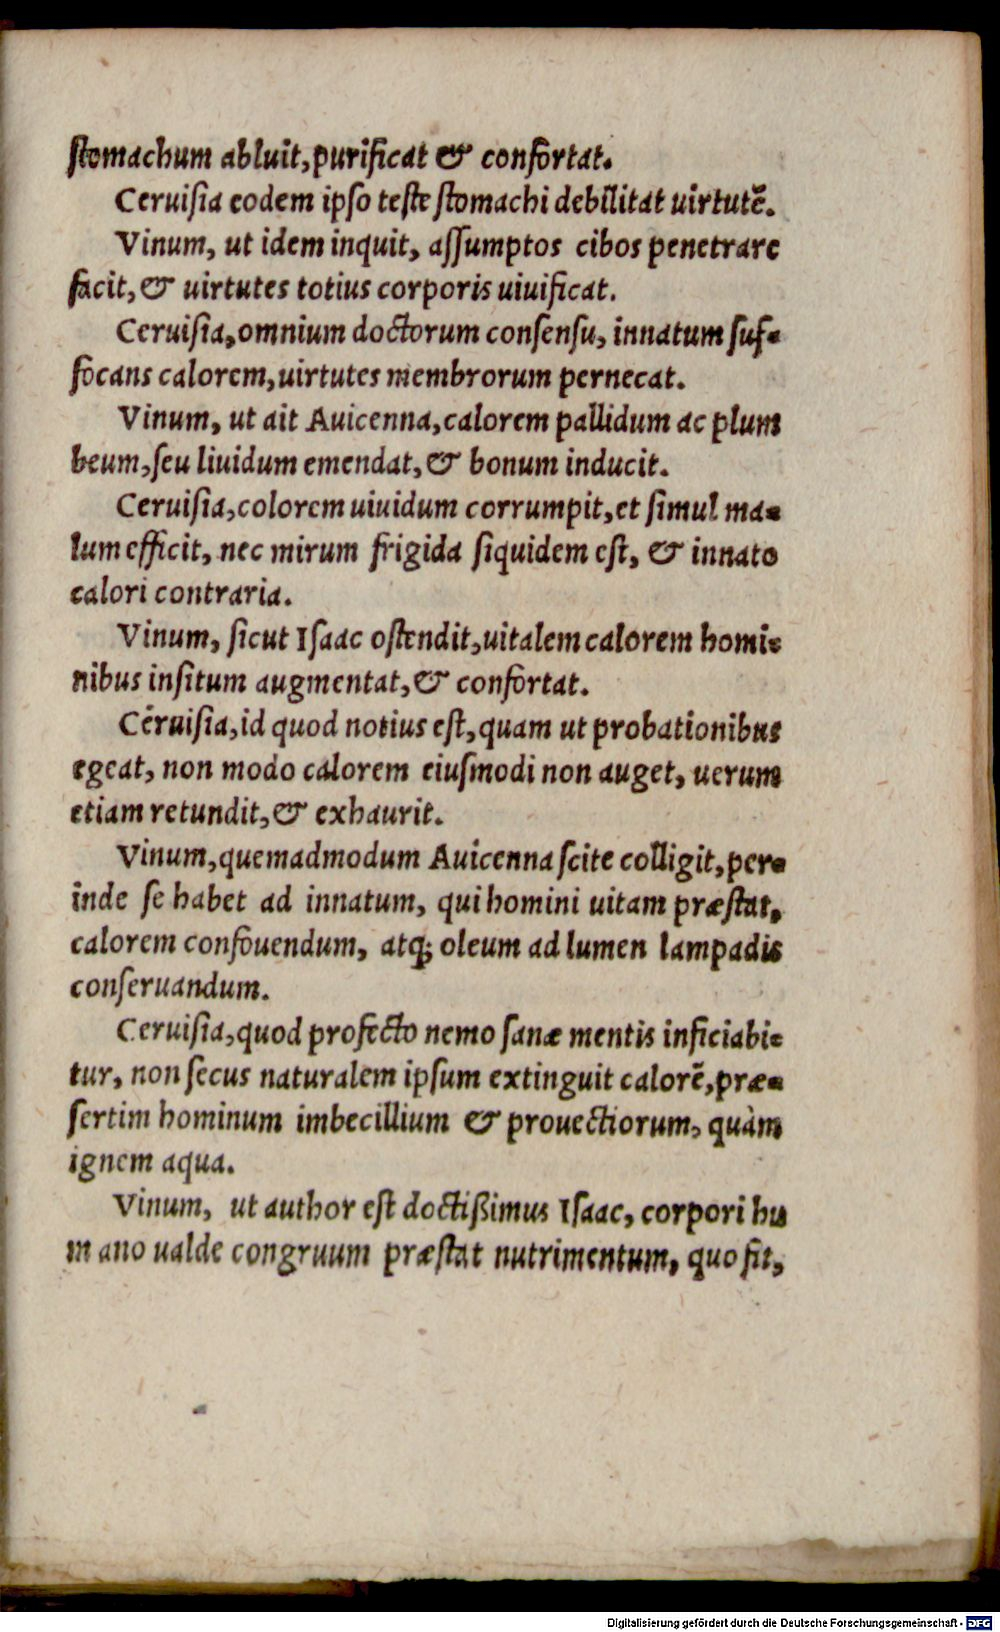 stomachum abluit, purificat & confortat.
Ceruisia eodem ipso teste stomachi debilitat uirtutē.
Vinum, ut idem inquit, assumptos cibos penetrare
facit, & uirtutes totius corporis uiuificat.
Ceruisia, omnium doctorum consensu, innatum suf-
focans calorem, uirtutes membrorum pernecat.
Vinum, ut ait Auicenna, calorem pallidum ac plum
beum, seu liuidum emendat, & bonum inducit.
Ceruisia, colorem uiuidum corrumpit, et simul ma-
lum efficit, nec mirum frigida siquidem est, & innato
calori contraria.
Vinum, sicut Isaac ostendit, uitalem calorem homi-
nibus insitum augmentat, & confortat.
Céruisia, id quod notius est, quam ut probationibus
egeat, non modo calorem eiusmodi non auget, uerum
etiam retundit, & exhaurit.
Vinum, quemadmodum Auicenna scite colligit, per-
inde se habet ad innatum, qui homini uitam præstat,
calorem confouendum, atq; oleum ad lumen lampadis
conseruandum.
Ceruisia, quod profecto nemo sanæ mentis inficiabi-
tur, non secus naturalem ipsum extinguit calorē, præ-
sertim hominum imbecillium & prouectiorum, quàm
ignem aqua.
Vinum, ut author est doctißimus Isaac, corpori hu
mano ualde congruum præstat nutrimentum, quo fit,
Digitalisierung gefördert durch die Deutsche Forschungsgemeinschaft - DFG